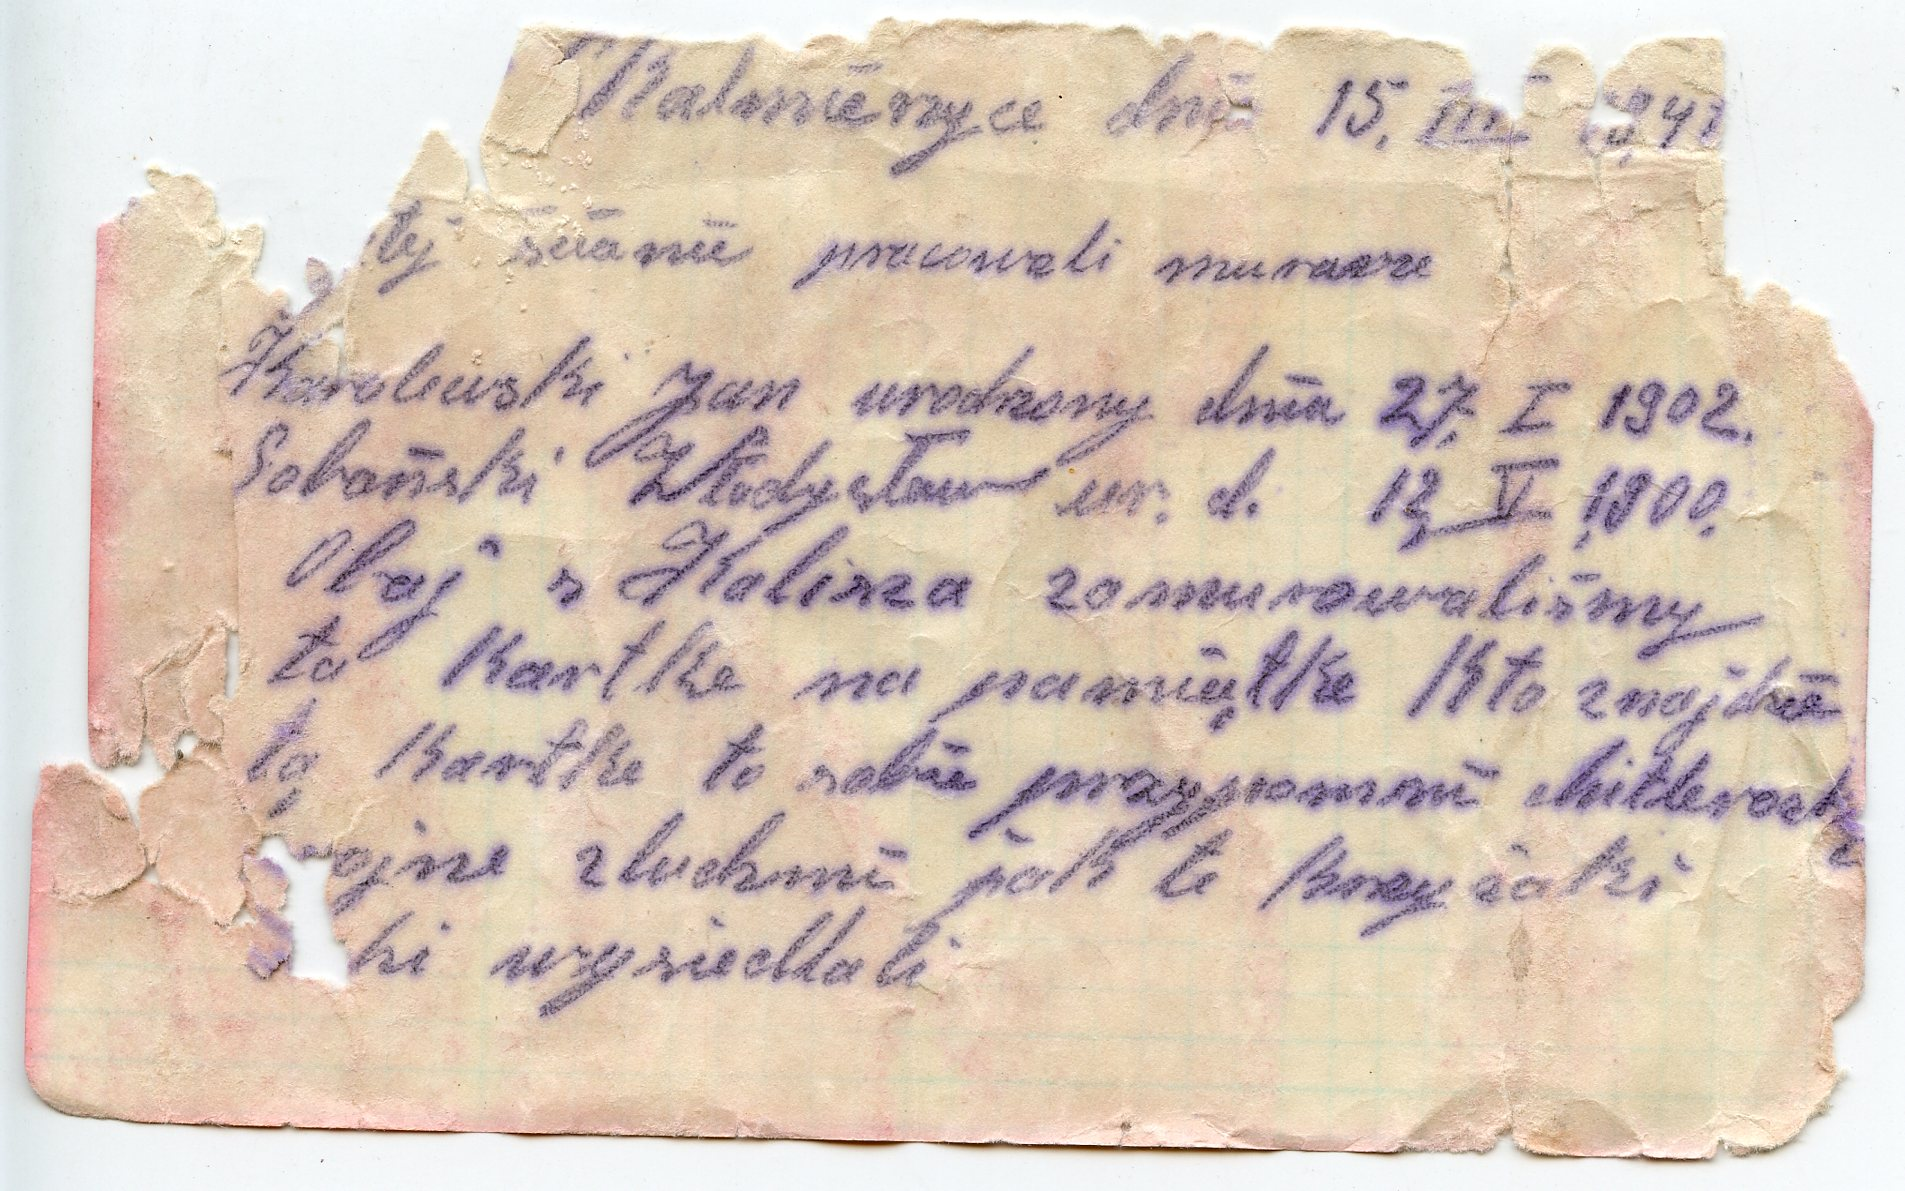 Skalmierzyce dnia 15. III 1941
tej ścianie pracowali murarze
Karolewski Jan urodzony dnia 27. I 1902.
Sobański Władysław ur. d. 12, V 1900.
Obaj z Kalisza zamurowaliśmy
ta kartke na pamiątke Kto znajdzie
tą kartke to sobie przypomni chitlerosk
ojne zluchmi jak te krzyżaki
ki wysiedlali